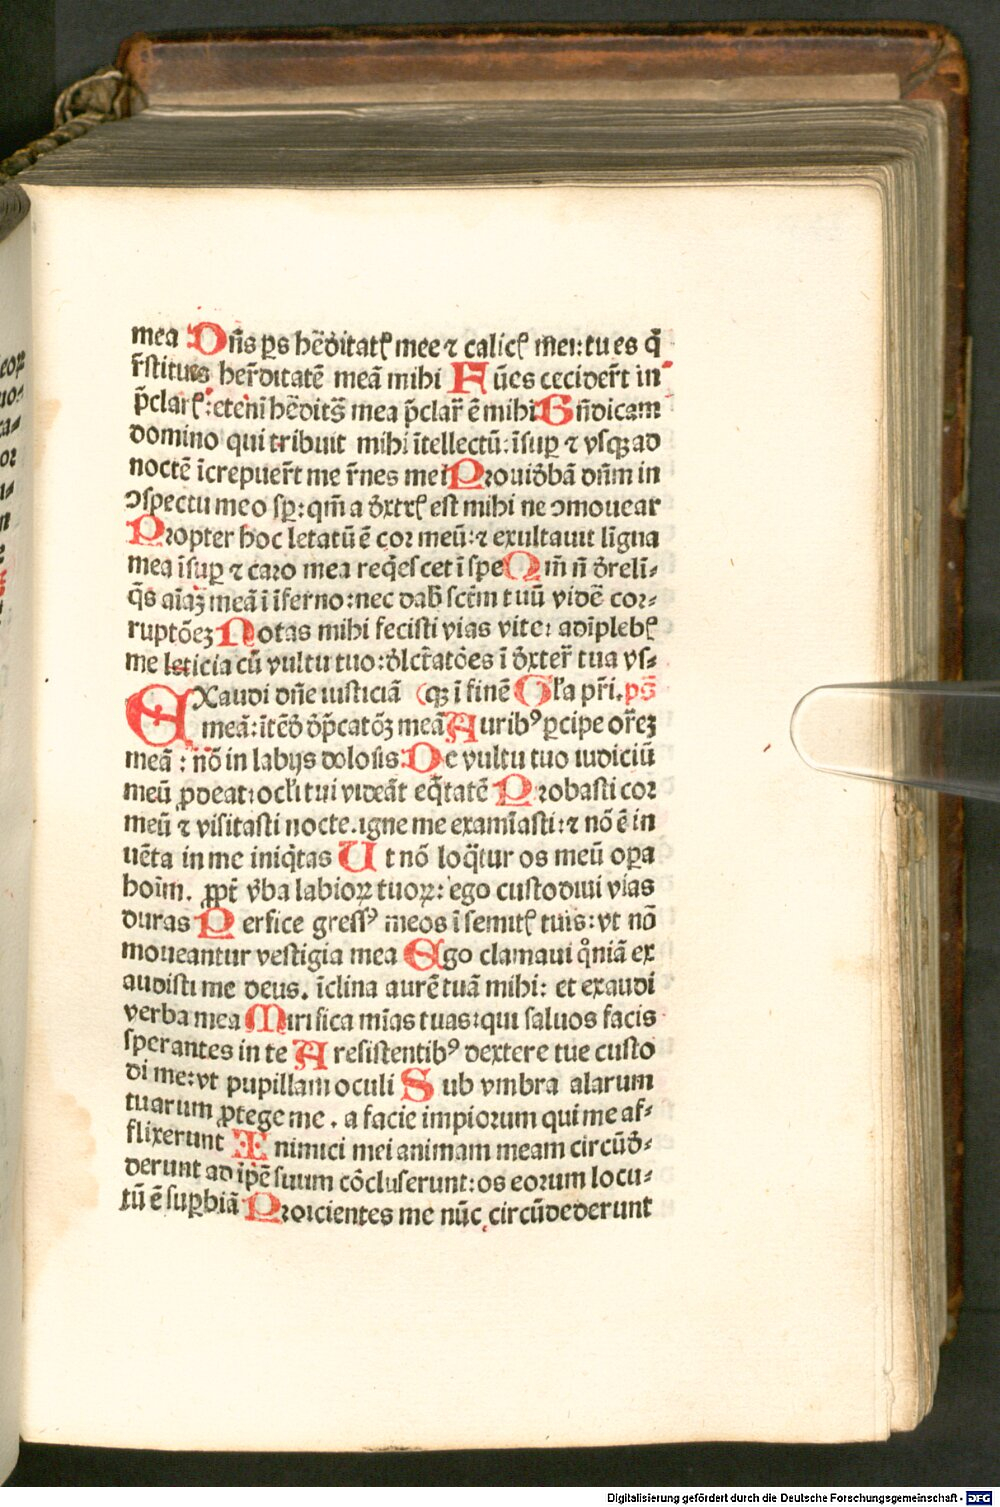 mea Dn̄s ꝑs hēditatꝭ mee ⁊ calicꝭ mei: tu es q̄
r̄stitues her̄ditatē meā mihi Fūes cecider̄t in
p̄clarꝭ: eteni hēditꝭ mea p̄clar̄ ē mihi Bn̄dicam
domino qui tribuit mihi ītellectū: īsuꝑ ⁊ vsqꝫ ad
noctē īcrepuer̄t me r̄nes mei Prouidꝰbā dn̄m in
ↄspectu meo sꝑ: qm̄ a dꝰxtrꝭ est mihi ne ↄmouear
Propter hoc letatū ē cor meū: ⁊ exultauit lingua
mea īsuꝑ ⁊ caro mea req̄escet ī spe Qm̄ n̄ dꝰreli⸗
q̄s aīaꝫ meā ī īferno: nec dab̄ sctm̄ tuū videꝰ cor⸗
ruptōeꝫ Notas mihi fecisti vias vite: adīplebꝭ
me leticia cū vultu tuo: dꝰlcr̄atōes ī dꝰxter̄ tua vs⸗
EXaudi dn̄e iusticiā (qꝫ ī finē Gl̄a pr̄i. ps̄
meā: ītēdꝰ dꝰp̄catōꝫ meā Auribꝰ ꝑcipe or̄eꝫ
meā: nō in labijs dolosis De vultu tuo iudiciū
meū ꝓdeat: ocl̄i tui videāt eq̄tatē Probasti cor
meū ⁊ visitasti nocte. igne me examīasti: ⁊ nō ē in
uēta in me iniq̄tas Ut nō loq̄tur os meū oꝑa
hoīm. ꝓpt̄ v̄ba labioꝝ tuoꝝ: ego custodiui vias
duras Perfice gressꝰ meos ī semitꝭ tuis: vt nō
moueantur vestigia mea Ego clamaui qn̄iā ex
audisti me deus. īclina aurē tuā mihi: et exaudi
verba mea Mirifica mīas tuas: qui saluos facis
sperantes in te A resistentibꝰ dextere tue custo
di me: vt pupillam oculi Sub vmbra alarum
tuarum ꝓtege me. a facie impiorum qui me af⸗
flixerunt Inimici mei animam meam circūdꝰ⸗
derunt adipē suum cōcluserunt: os eorum locu⸗
tū ē suꝑbiā Proicientes me nūc circūdederunt
Digitalisierung gefördert durch die Deutsche Forschungsgemeinschaft - DFG